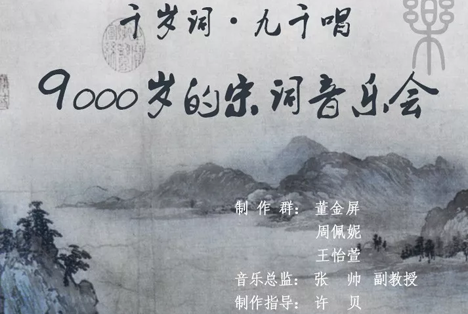 千岁词·九千唱
9000岁的宋词音乐会
制 作 群： 董金屏
周佩妮
王怡萱
音乐总监： 张 帅 副教授
制作指导： 许 贝